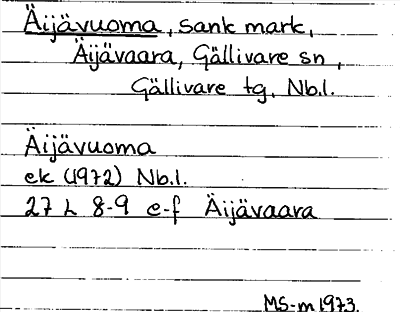 Äijävuoma, sank mark,
Äijävaara, Gällivare sn,
Gällivare tg, Nb.l.
Äijävuoma
ek (1972) Nb.l.
27 L 8-9 e-f Äijävaara
MS-m 1973.